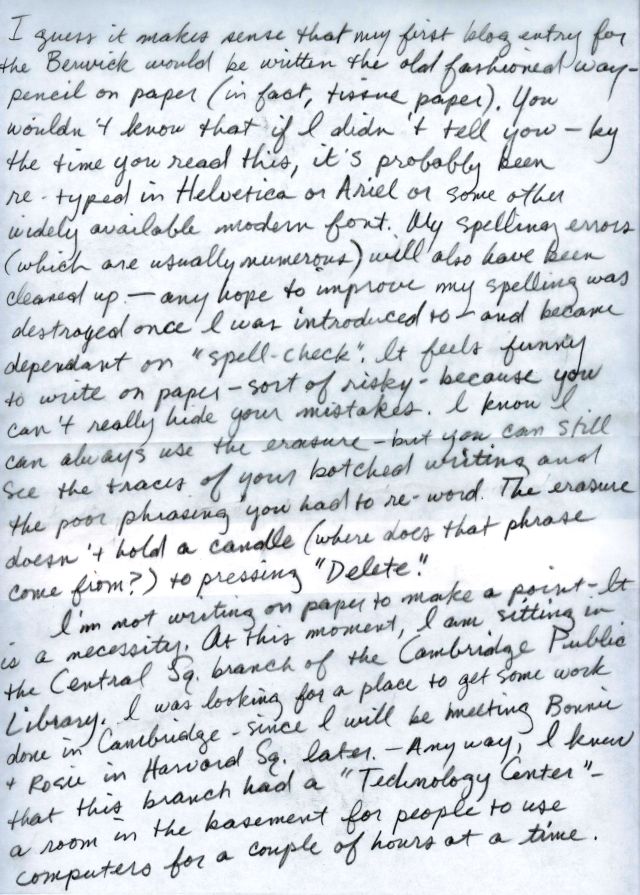 I guess it makes sense that my first blog entry for
the Berwick would be written the old fashioned way-
pencil on paper (in fact, tissue paper). You
wouldn't know that if I didn't tell you - by
the time you read this, it's probably been
re-typed in Helvetica or Ariel or some other
widely available modern font. My spelling errors
(which are usually numerous) will also have been
cleaned up. - any hope to improve my spelling was
destroyed once I was introduced to - and became
dependant on "spell-check". It feels funny
to write on paper - sort of risky - because you
can't really hide your mistakes. I know I
can always use the erasure - but you can still
see the traces of your botched writing and
the poor phrasing you had to re-word. The erasure
doesn't hold a candle (where does that phrase
come from?) to pressing "Delete."
I'm not writing on paper to make a point - It
is a necessity. At this moment, I am sitting in
the Central Sq. branch of the Cambridge Public
Library. I was looking for a place to get some work
done in Cambridge - since I will be meeting Bonnie
+ Rosie in Harvard Sq. later. - Anyway, I knew
that this branch had a "Technology Center" -
a room in the basement for people to use
computers for a couple of hours at a time.